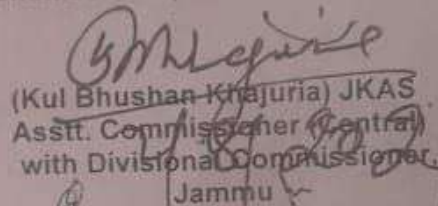 (Kul Bhushan Khajuria) JKAS
Asstt. Commissioner (Central)
with Divisional Commissioner,
Jammu